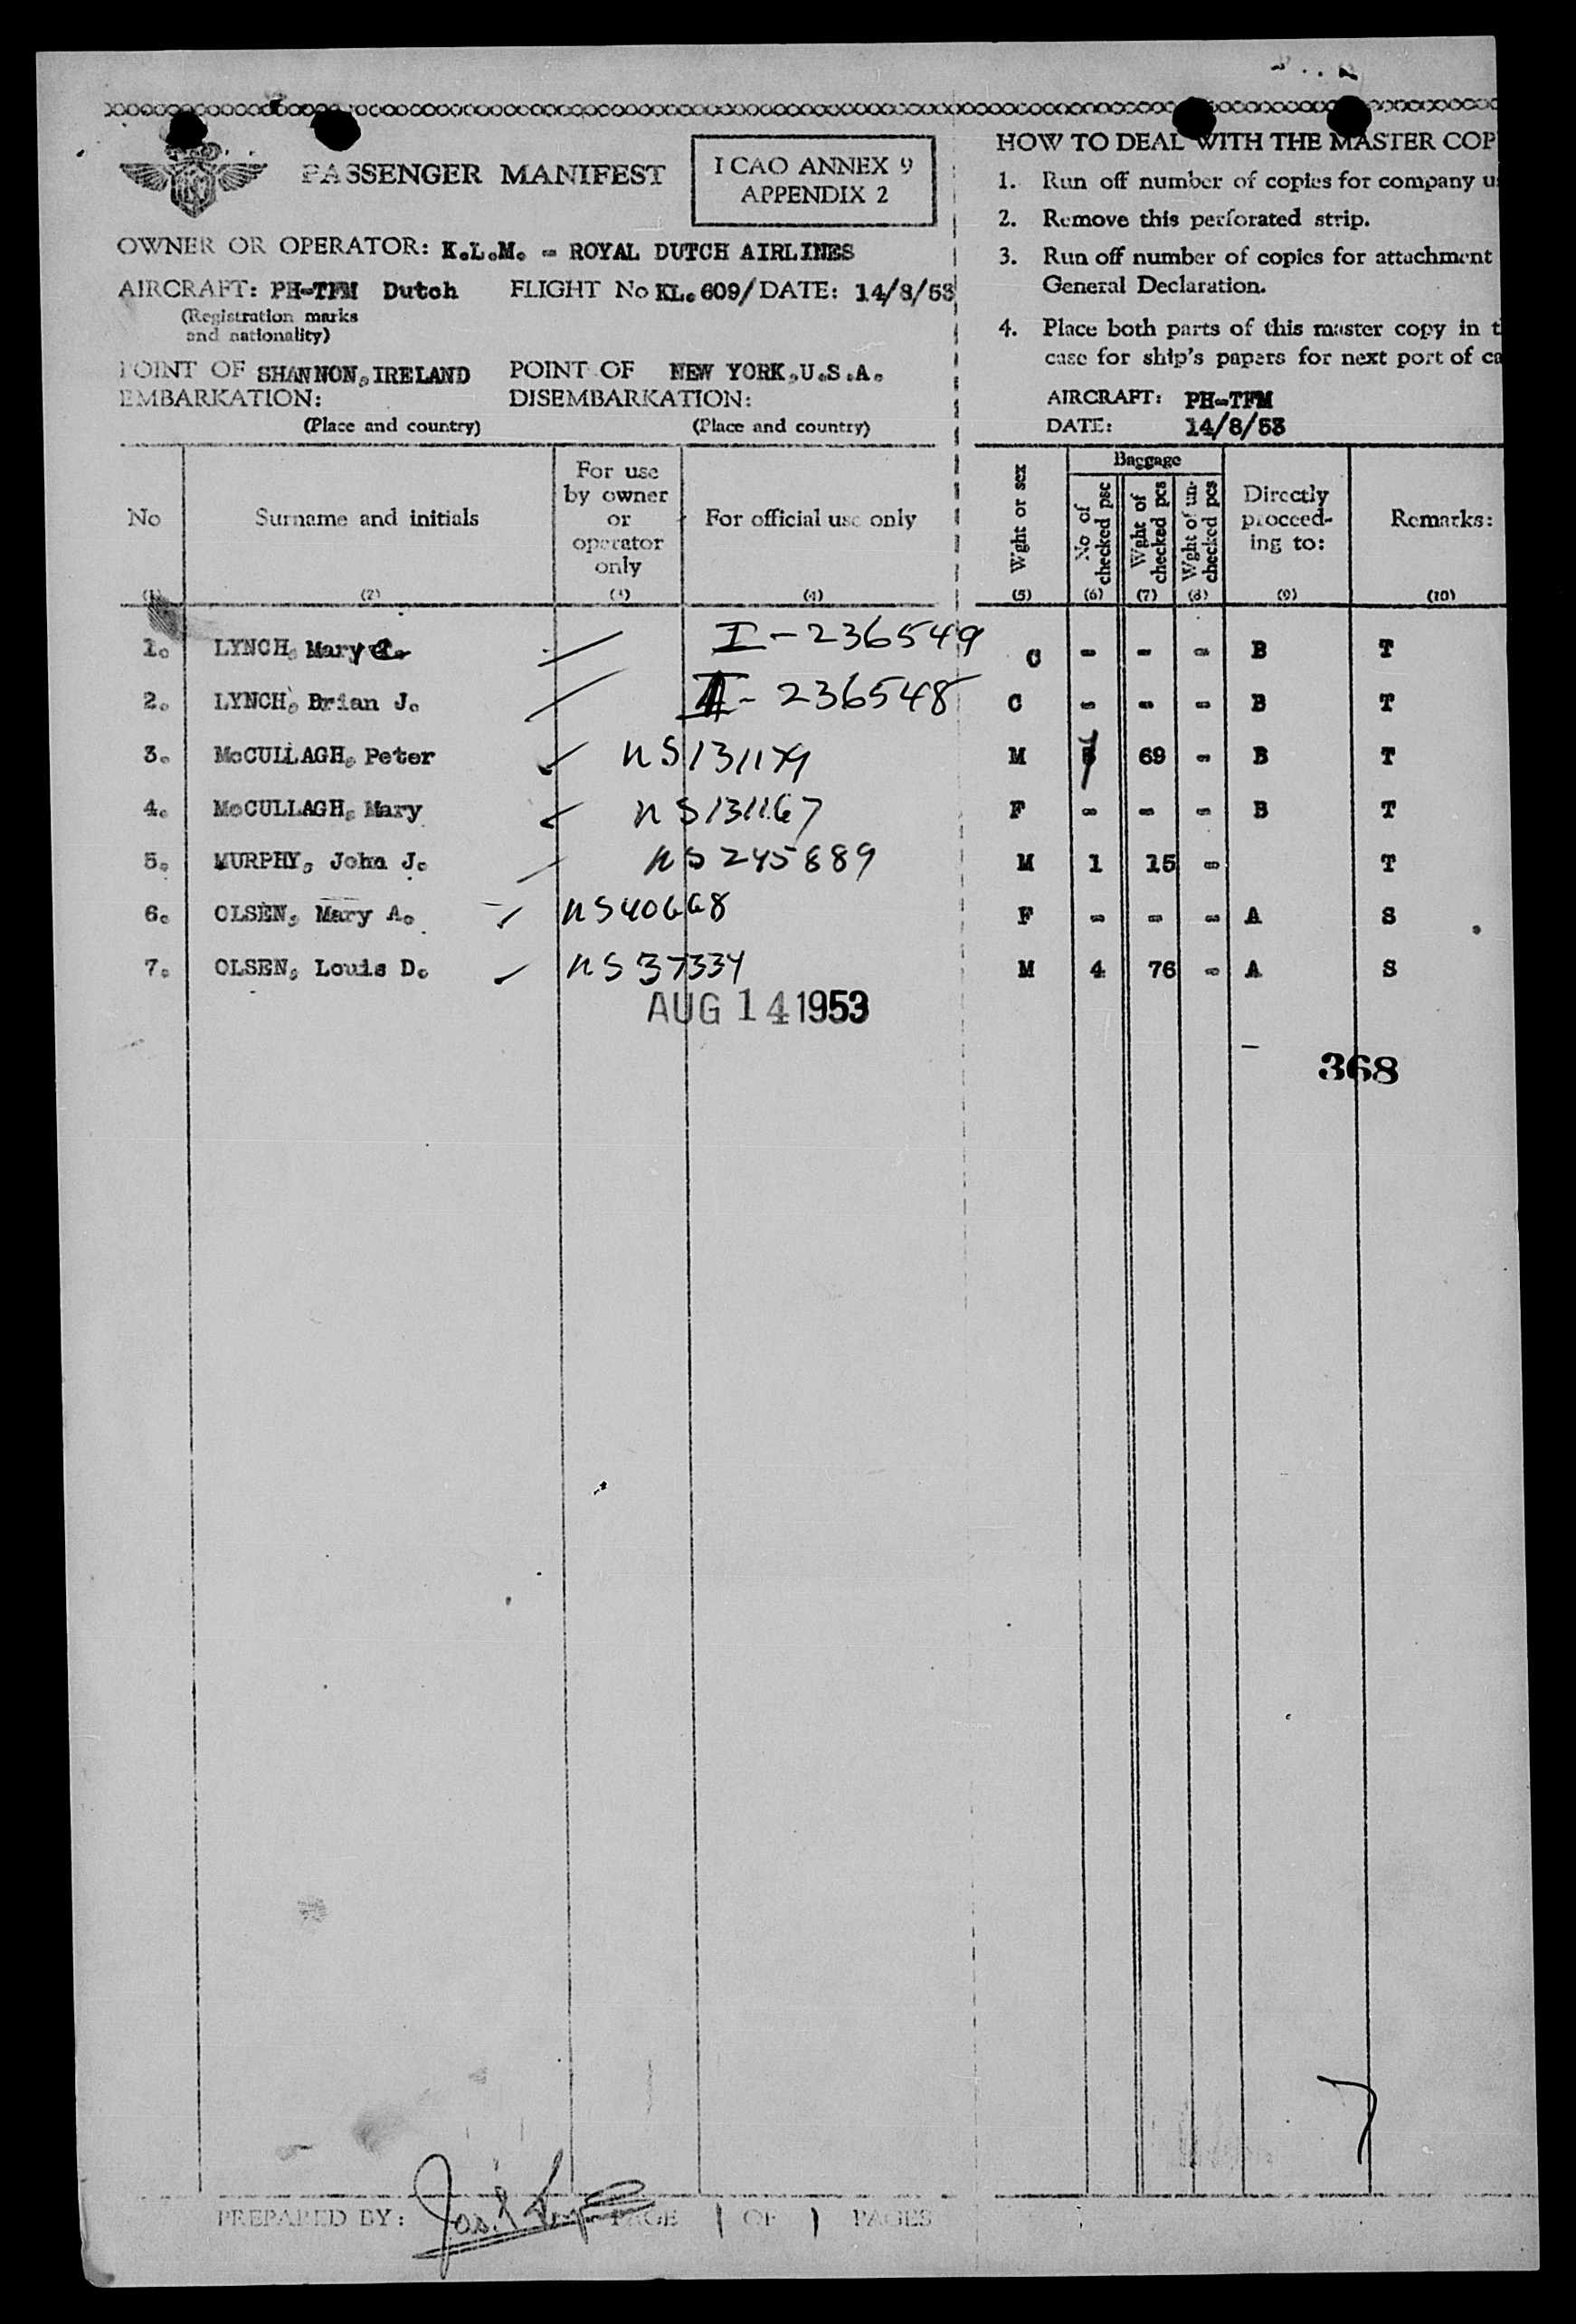 PASSENGER MANIFEST
I CAO ANNEX 9
APPENDIX 2
OWNER OR OPERATOR: K.L.M. - ROYAL DUTCH AIRLINES
AIRCRAFT: PH-TFM Dutch FLIGHT No KL.609/ DATE: 14/8/53
(Registration marks
and nationality)
POINT OF SHANNON, IRELAND POINT OF NEW YORK, U.S.A.
EMBARKATION: DISEMBARKATION:
(Place and country) (Place and country)
HOW TO DEAL WITH THE MASTER COP
1. Run off number of copies for company u
2. Remove this perforated strip.
3. Run off number of copies for attachment
General Declaration.
4. Place both parts of this master copy in t
case for ship's papers for next port of ca
AIRCRAFT: PH-TFM
DATE: 14/8/53
No Surname and initials For use by owner or operator only For official use only Wght or sex Baggage No of checked psc Wght of checked pcs Wght of un-checked pcs Directly proceed-ing to: Remarks:
(1) (2) (3) (4) (5) (6) (7) (8) (9) (10)
1. LYNCH, Mary I-236549 C - - - B T
2. LYNCH, Brian J. I-236548 C - - - B T
3. McCULLAGH, Peter NS131179 M 69 - B T
4. McCULLAGH, Mary NS131167 F - - - B T
5. MURPHY, John J. NS245889 M 1 15 - T
6. OLSEN, Mary A. NS40668 F - - - A S
7. OLSEN, Louis D. NS37334 M 4 76 - A S
AUG 14 1953
368
PREPARED BY: PAGE 1 OF 1 PAGES